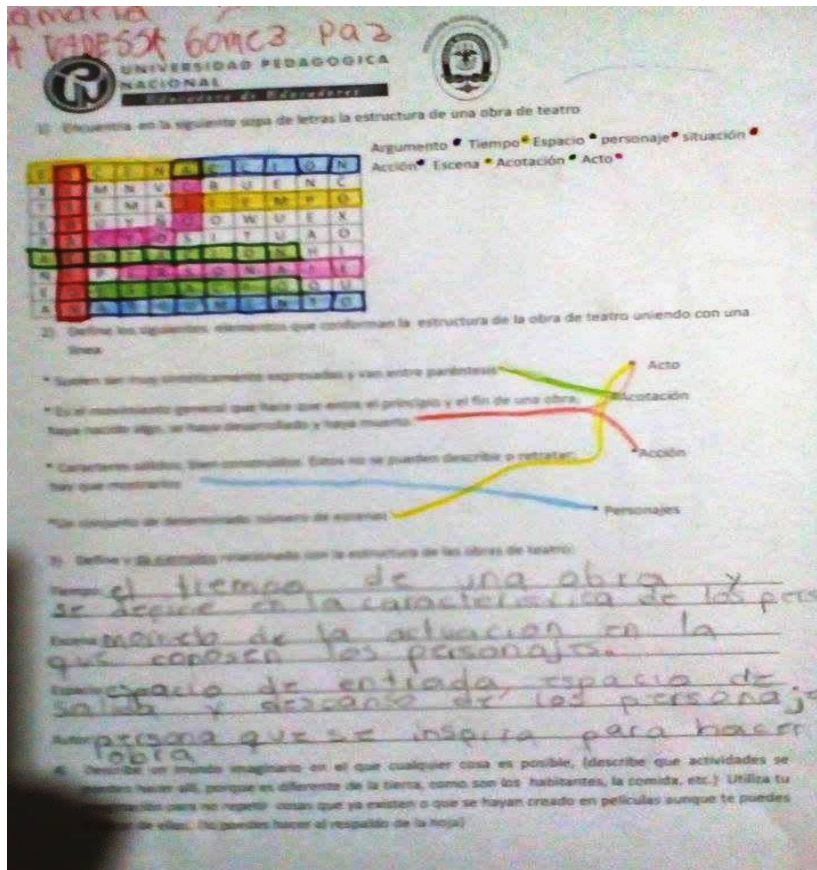 VANESSA GOMEZ PAZ
UNIVERSIDAD PEDAGOGICA
NACIONAL
Educadora de Educadores
1) Encuentra en la siguiente sopa de letras la estructura de una obra de teatro
Argumento Tiempo Espacio personaje situación
Acción Escena Acotación Acto
E S C E N A C C I O N
M N U C B U E N C
E M A T I E M P O
U Y Ñ O O W U E X
A A C T O S I T U A O
A C O T A C I O N H I
N P E R S O N A J E
A R G U M E N T O
2) Define los siguientes elementos que conforman la estructura de la obra de teatro uniendo con una
línea
* Suelen ser muy sintéticamente expresadas y van entre paréntesis
Acto
* Es el movimiento general que hace que entre el principio y el fin de una obra,
Acotación
haya nacido algo, se haya desarrollado y haya muerto.
* Caracteres sólidos, bien construidos. Estos no se pueden describir o retratar,
Acción
hay que mostrarlos
Personajes
*Un conjunto de determinado número de escenas
3) Define y da ejemplos relacionado con la estructura de las obras de teatro:
Tiempo: el tiempo de una obra y
se define en la caracteristica de los pers
Escena: de la actuacion en la
que conosen los personajes.
Espacio: espacio de entrada, espacio de
salida y descanso de los personaje
Autor: persona que se inspira para hacer
obra
4) Describe un mundo imaginario en el que cualquier cosa es posible, (describe que actividades se
pueden hacer allí, porque es diferente de la tierra, como son los habitantes, la comida, etc.) Utiliza tu
imaginación para no repetir cosas que ya existen o que se hayan creado en películas aunque te puedes
de ellas. (lo puedes hacer al respaldo de la hoja)